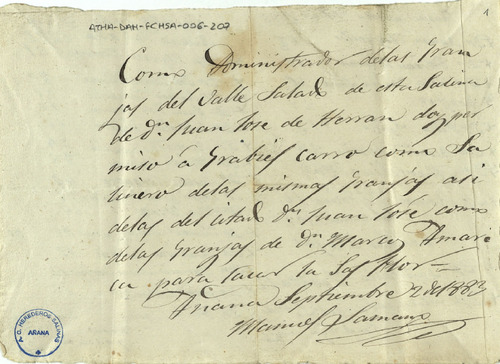 ATHA-DAH-FCHSA-006-207
1
Como Administrador de las Gran
jas del Valle Salado de esta Salina
de dn. Juan Jose de Herran doy per
miso á Grabiel carro como Sa
linero de las mismas Granjas asi
de las del citado Dn. Juan José como
de las Granjas de dn. Marcos Amari
ca para sacar la Sal Flor
Añana Septiembre 2 de 1883
Manuel Samano
A.C. HEREDEROS SALINAS
AÑANA